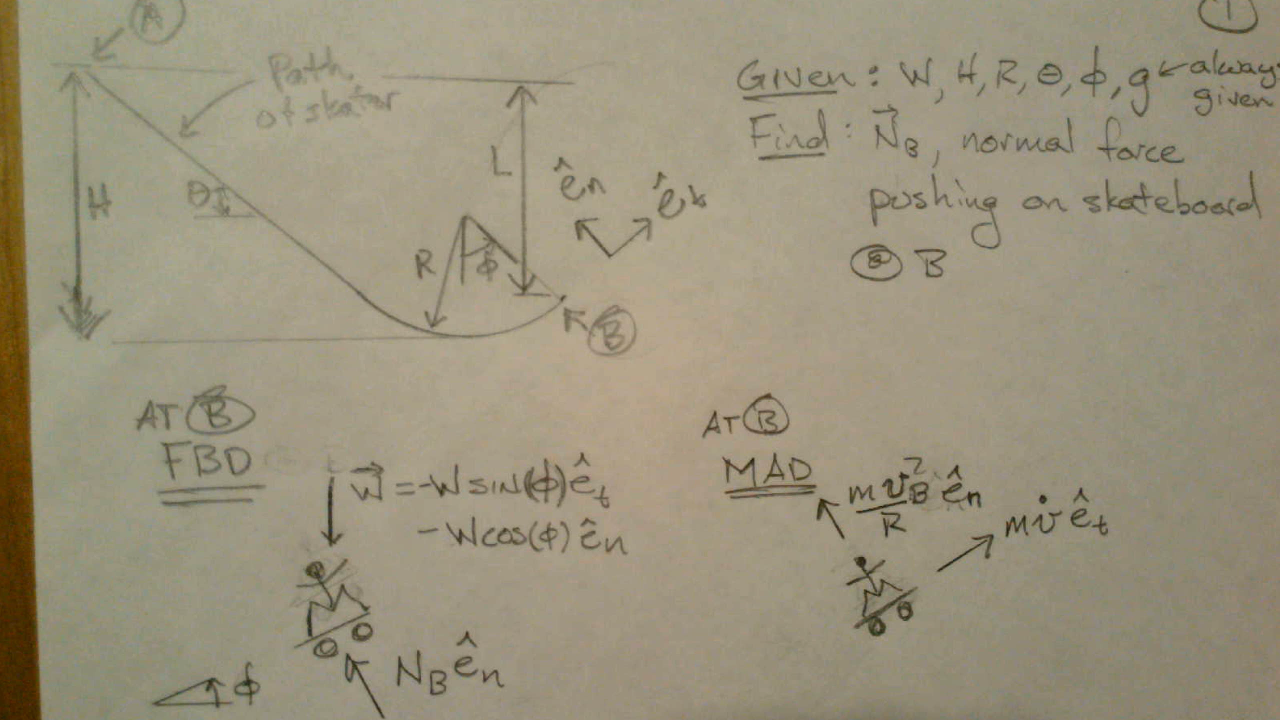 ①
Ⓐ
Path
of skater
H
θ
L
R
ϕ
ê_n
ê_t
Ⓑ
Given: W, H, R, θ, ϕ, g ← always
given
Find: N⃗_B, normal force
pushing on skateboard
@ B
AT Ⓑ
FBD
W⃗ = -W sin(ϕ) ê_t
- W cos(ϕ) ê_n
N_B ê_n
ϕ
AT Ⓑ
MAD
m v_B^2 / R ê_n
m v̇ ê_t